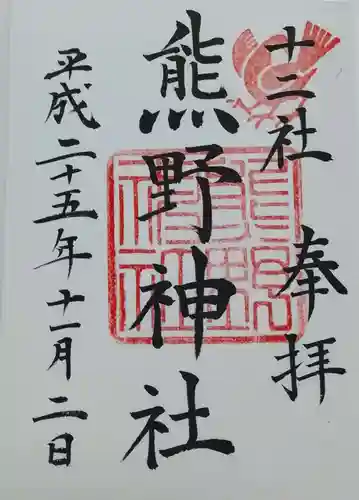 十二社 奉拝
熊野神社
平成二十五年十一月二日